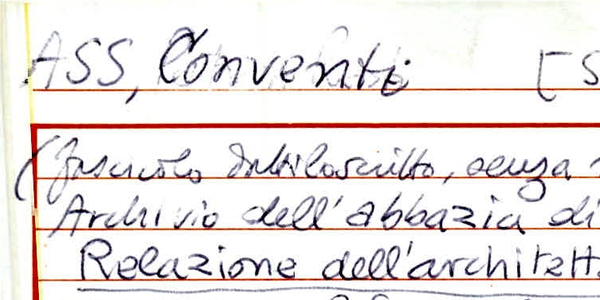 ASS, Conventi [S
(fascicolo dattiloscritto, senza
Archivio dell'abbazia di
Relazione dell'architett